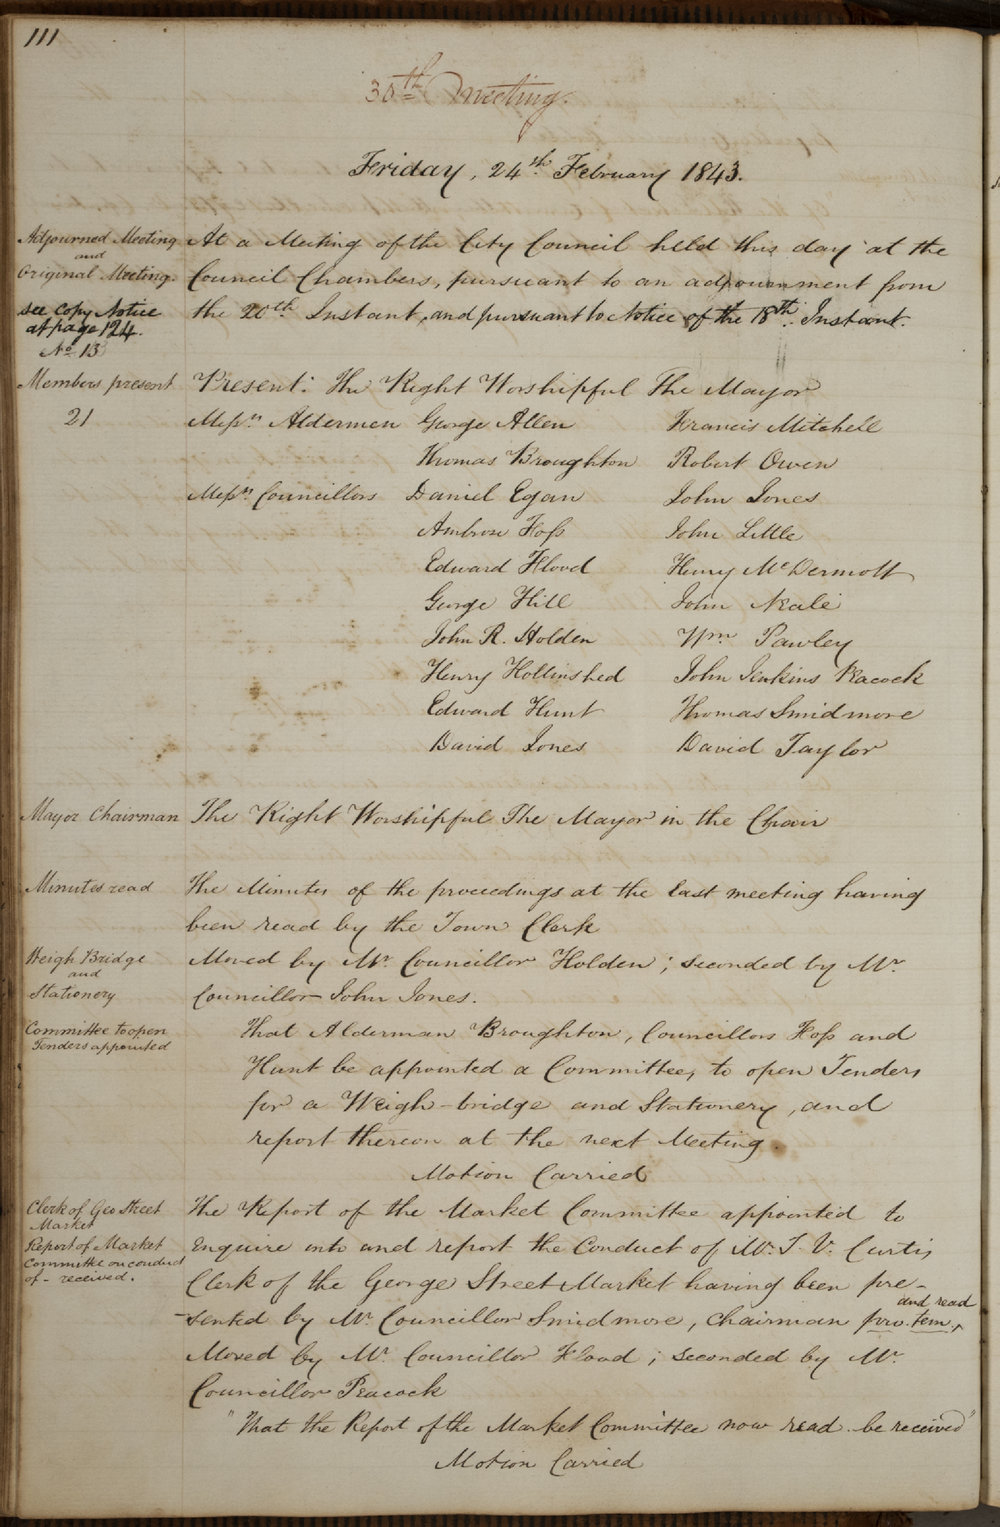 111
30th Meeting.
Friday, 24th February 1843.
Adjourned Meeting
and
Original Meeting.
see Copy Notice
at page 124.
No 13
At a Meeting of the City Council held this day at the
Council Chambers, pursuant to an adjournment from
the 20th Instant, and pursuant to Notice of the 18th Instant.
Members present
21
Present: The Right Worshipful The Mayor
Messrs Aldermen George Allen Francis Mitchell
Thomas Broughton Robert Owen
Messrs Councillors Daniel Egan John Jones
Ambrose Foss John Little
Edward Flood Henry McDermott
George Hill John Neale
John R. Holden Wm Pawley
Henry Hollinshed John Jenkins Peacock
Edward Hunt Thomas Smidmore
David Jones David Taylor
Mayor Chairman
The Right Worshipful The Mayor in the Chair
Minutes read
The Minutes of the proceedings at the last meeting having
been read by the Town Clerk
Weigh Bridge
and
Stationery
Moved by Mr. Councillor Holden; seconded by Mr.
Councillor John Jones.
Committee to open
Tenders appointed
That Alderman Broughton, Councillors Foss and
Hunt be appointed a Committee, to open Tenders
for a Weigh-bridge and Stationery, and
report thereon at the next Meeting.
Motion Carried
Clerk of Geo Street
Market
Report of Market
Committee on conduct
of - received.
The Report of the Market Committee appointed to
Enquire into and report the Conduct of Mr. T. V. Curtis
Clerk of the George Street Market having been pre-
-sented by Mr. Councillor Smidmore, Chairman pro. tem, and read
Moved by Mr. Councillor Flood; seconded by Mr.
Councillor Peacock
"That the Report of the Market Committee now read be received"
Motion Carried